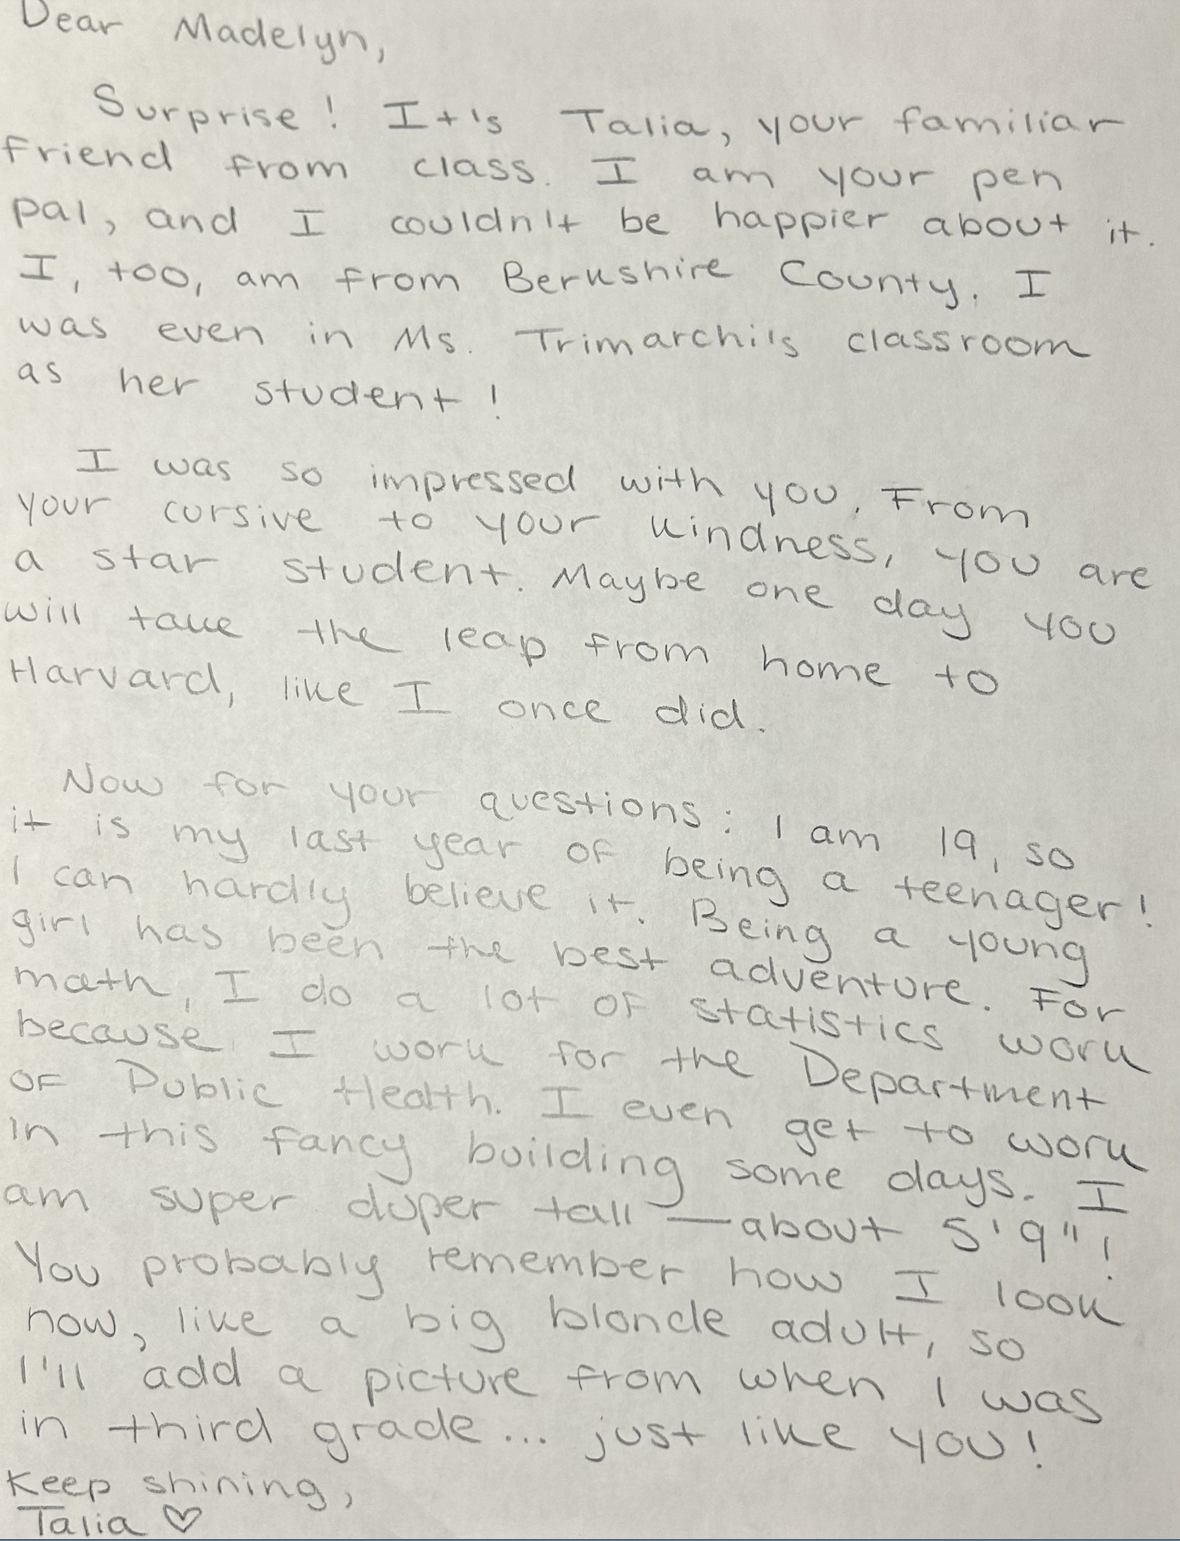 Dear Madelyn,
Surprise! It's Talia, your familiar
friend from class. I am your pen
pal, and I couldn't be happier about it.
I, too, am from Berkshire County. I
was even in Ms. Trimarchi's classroom
as her student!
I was so impressed with you. From
your cursive to your kindness, you are
a star student. Maybe one day you
will take the leap from home to
Harvard, like I once did.
Now for your questions: I am 19, so
it is my last year of being a teenager!
I can hardly believe it. Being a young
girl has been the best adventure. For
math, I do a lot of statistics work
because I work for the Department
of Public Health. I even get to work
in this fancy building some days. I
am super duper tall—about 5'9"!
You probably remember how I look
now, like a big blonde adult, so
I'll add a picture from when I was
in third grade... just like you!
Keep shining,
Talia ♡